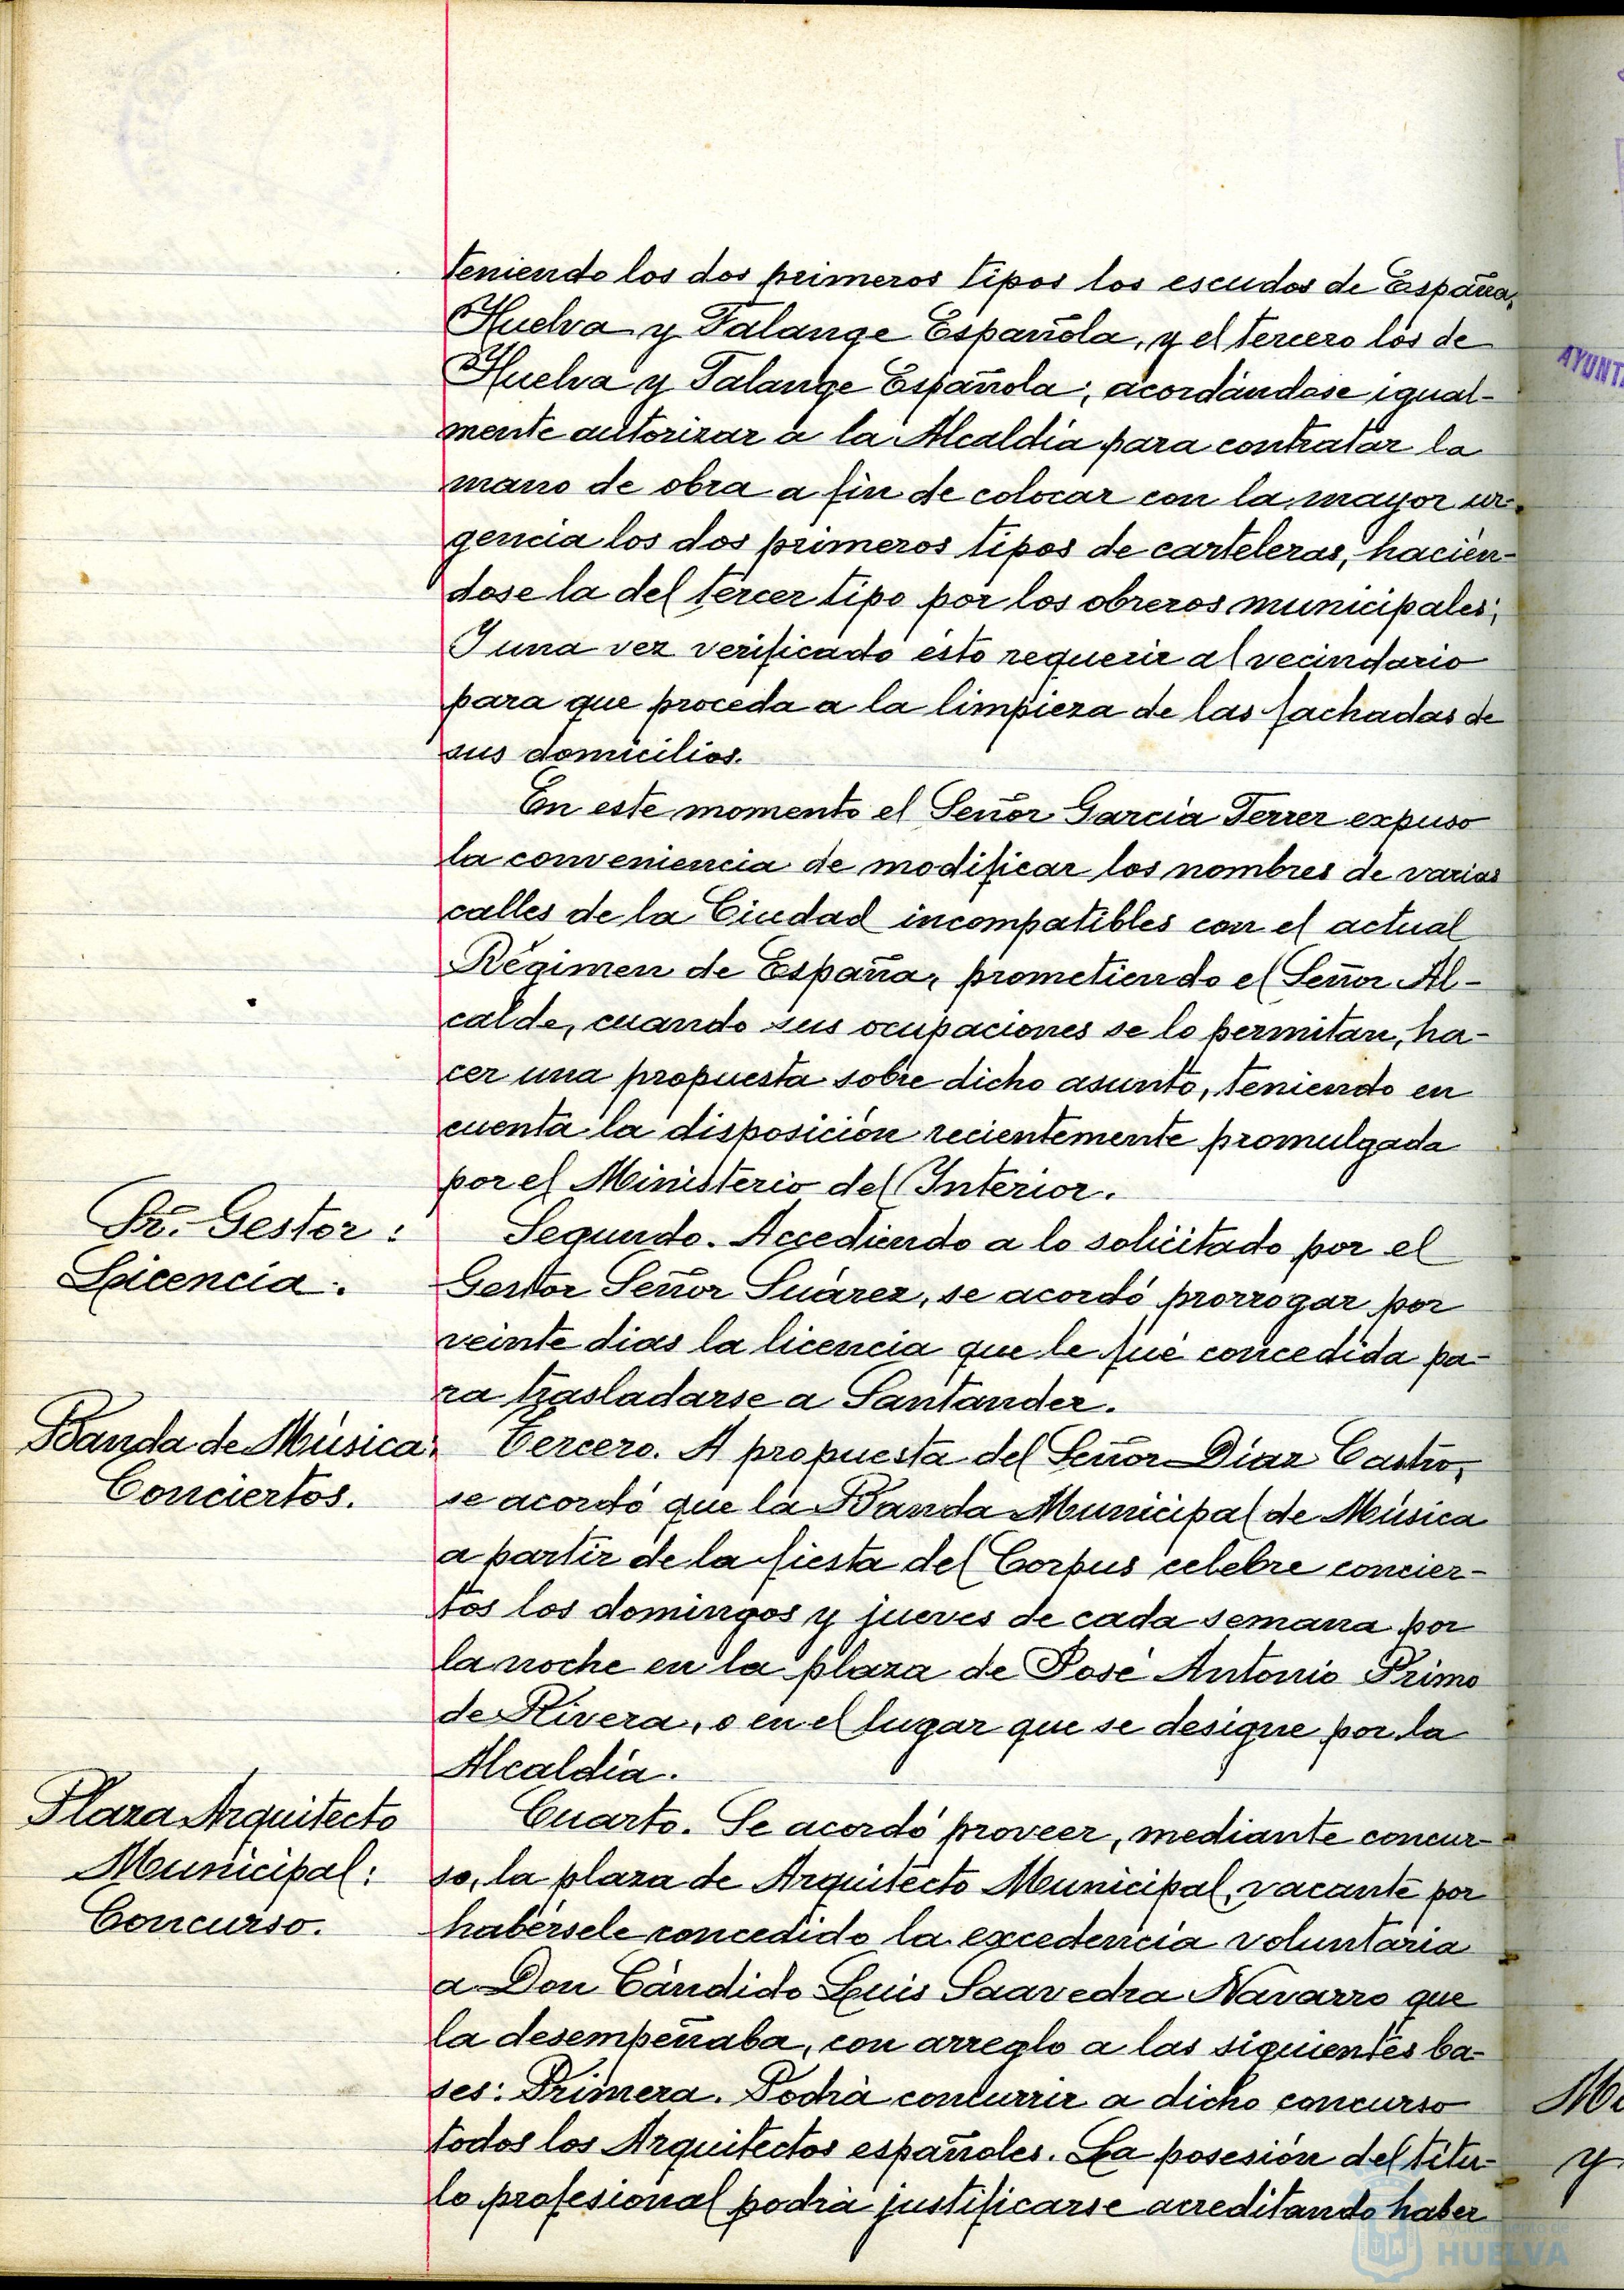 teniendo los dos primeros tipos los escudos de España,
Huelva y Falange Española, y el tercero los de
Huelva y Falange Española; acordándose igual-
mente autorizar a la Alcaldía para contratar la
mano de obra a fin de colocar con la mayor ur-
gencia los dos primeros tipos de carteleras, hacién-
dose la del tercer tipo por los obreros municipales;
Y una vez verificado ésto requerir al vecindario
para que proceda a la limpieza de las fachadas de
sus domicilios.
En este momento el Señor García Ferrer expuso
la conveniencia de modificar los nombres de varias
calles de la Ciudad incompatibles con el actual
Régimen de España, prometiendo el Señor Al-
calde, cuando sus ocupaciones se lo permitan, ha-
cer una propuesta sobre dicho asunto, teniendo en
cuenta la disposición recientemente promulgada
por el Ministerio del Interior.
Sr. Gestor:
Licencia.
Segundo. Accediendo a lo solicitado por el
Gestor Señor Suárez, se acordó prorrogar por
veinte dias la licencia que le fué concedida pa-
ra trasladarse a Santander.
Banda de Música.
Conciertos.
Tercero. A propuesta del Señor Díaz Castro,
se acordó que la Banda Municipal de Música
a partir de la fiesta del Corpus celebre concier-
tos los domingos y jueves de cada semana por
la noche en la plaza de José Antonio Primo
de Rivera, o en el lugar que se designe por la
Alcaldía.
Plaza Arquitecto
Municipal:
Concurso.
Cuarto. Se acordó proveer, mediante concur-
so, la plaza de Arquitecto Municipal, vacante por
habérsele concedido la excedencia voluntaria
a Don Cándido Luis Saavedra Navarro que
la desempeñaba, con arreglo a las siguientes ba-
ses: Primera. Podrá concurrir a dicho concurso
todos los Arquitectos españoles. La posesión del títu-
lo profesional podrá justificarse acreditando haber
AYUNT
Ayuntamiento de
HUELVA